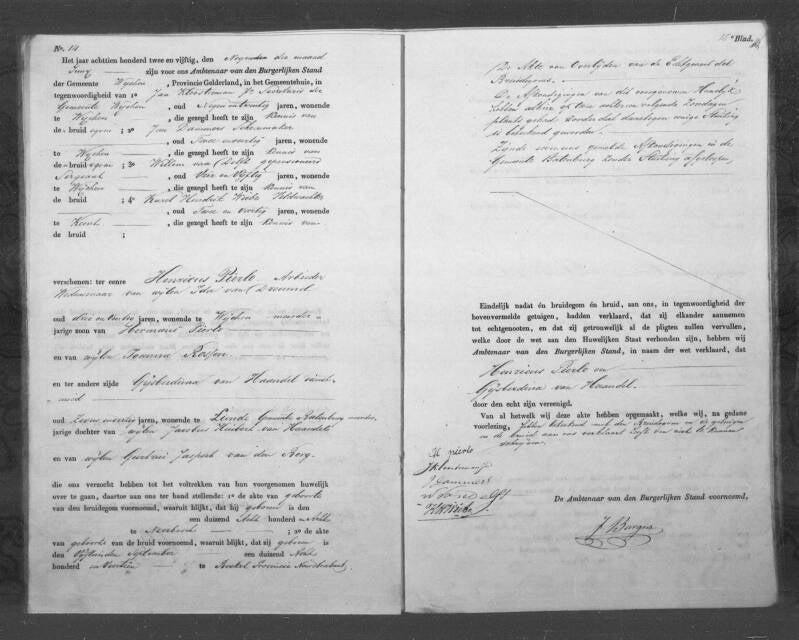 No. 14
Het jaar achttien honderd twee en vijftig, den Negenden der maand
Juny zijn voor ons Ambtenaar van den Burgerlijken Stand
der Gemeente Wychen, Provincie Gelderland, in het Gemeentehuis, in
tegenwoordigheid van 1º Jan Kloosterman Jr Secretaris der
Gemeente Wychen, oud Negenentwintig jaren, wonende
te Wychen, die gezegd heeft te zijn Kennis van
de bruidegom; 2º Jan Dammers Schoenmaker
, oud jaren, wonende
te Wychen, die gezegd heeft te zijn Kennis van
de bruidegom; 3º Willem van Delft gepensioneerd
Sergeant, oud Vier en Vyftig jaren, wonende
te Wychen, die gezegd heeft te zijn Kennis van
de bruid; 4º Karel Hendrik Veldwachter
, oud Twee en Veertig jaren, wonende
te, die gezegd heeft te zijn Kennis van
de bruid;
verschenen: ter eenre Henricus Pierlo Arbeider
Weduwnaar van wylen Ida van Dreumel
oud jaren, wonende te Wychen meerder-
jarige zoon van Hermanus Pierlo
en van wylen Joanna
en ter andere zijde Gysberdina van Haandel dienst-
meid
oud jaren, wonende te Leinde Gemeente Batenburg meerder-
jarige dochter van wylen Jacobus Huibert van Haandel
en van wylen Jaspers van den Berg
die ons verzocht hebben tot het voltrekken van hun voorgenomen huwelijk
over te gaan, daartoe aan ons ter hand stellende: 1º de akte van geboorte
van den bruidegom voornoemd, waaruit blijkt, dat hij geboren is den
een duizend Acht honderd en Acht
te; 2º de akte
van geboorte van de bruid voornoemd, waaruit blijkt, dat zij geboren is
den Vyftienden September een duizend Acht
honderd en Veertien te Boekel Provincie Noordbrabant,
15e Blad.
De Akte van Overlyden van de Echtgenoot des
Bruidegoms.
De Afkondigingen van dit voorgenomen Huwelyk
hebben alhier op twee achtereenvolgende Zondagen
plaats gehad zonder dat daartegen eenige Stuiting
is beteekend geworden.
Zynde gemelde Afkondigingen in de
Gemeente Batenburg zonder Stuiting afgeloopen,
Eindelijk nadat én bruidegom én bruid, aan ons, in tegenwoordigheid der
bovenvermelde getuigen, hadden verklaard, dat zij elkander aannemen
tot echtgenooten, en dat zij getrouwelijk al de pligten zullen vervullen,
welke door de wet aan den Huwelijken Staat verbonden zijn, hebben wij
Ambtenaar van den Burgerlijken Stand, in naam der wet verklaard, dat
Henricus Pierlo en
Gysberdina van Haandel
door den echt zijn vereenigd.
Van al hetwelk wij deze akte hebben opgemaakt, welke wij, na gedane
voorlezing, hebben geteekend met den Bruidegom en de getuigen
en de bruid aan ons verklaart heeft van niet te kunnen
schryven.
H pierlo
J Kloosterman Jr
J Dammers
W van Delft
De Ambtenaar van den Burgerlijken Stand voornoemd,
J. Burgers